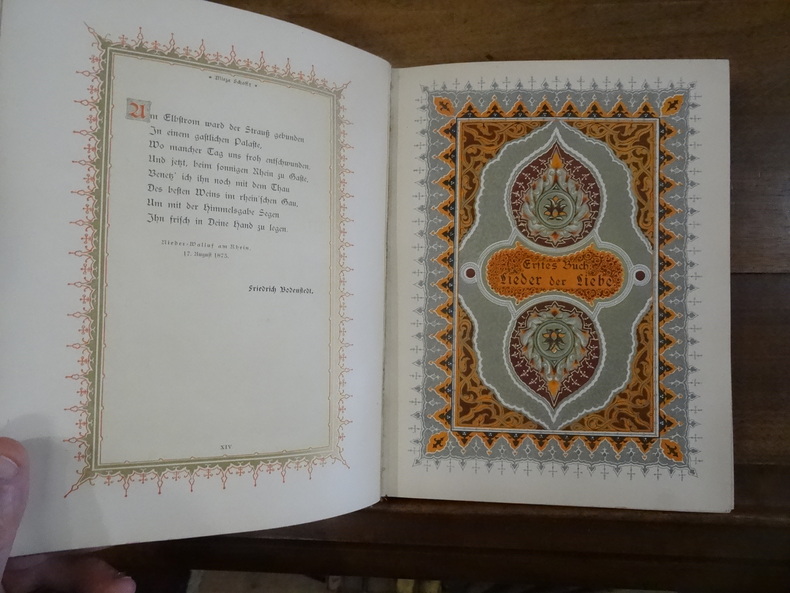 Mirza Schaffy
Am Elbstrom ward der Strauß gebunden
In einem gastlichen Palaste,
Wo mancher Tag uns froh entschwunden.
Und jetzt, beim sonnigen Rhein zu Gaste,
Benetz' ich ihn noch mit dem Thau
Des besten Weins im rhein'schen Gau,
Um mit der Himmelsgabe Segen
Ihn frisch in Deine Hand zu legen.
Nieder-Walluf am Rhein.
17. August 1875.
Friedrich Bodenstedt.
XIV
Erstes Buch
Lieder der Liebe